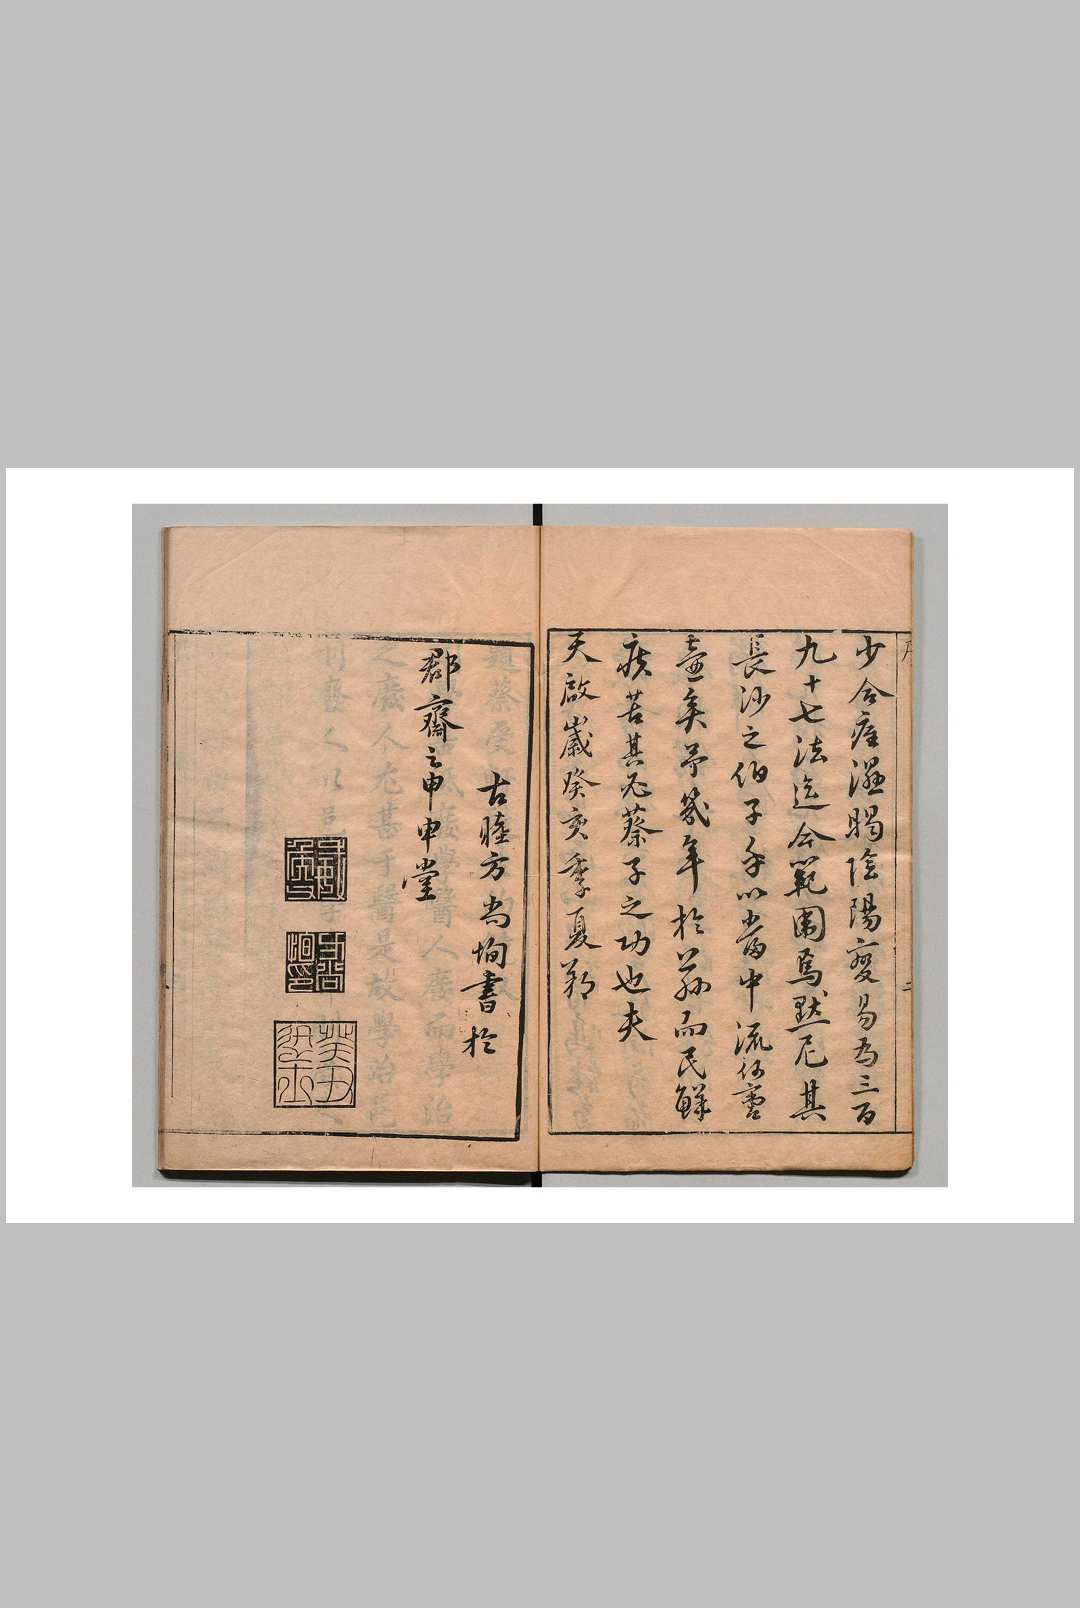 少合痓濕暍陰陽變易為三百
九十七法迄今範圍焉默尼其
長沙之伯子乎以當中流何啻
壺矣予幾年於茲而民鮮
疾苦其忍蔡子之功也夫
天啟歲癸亥季夏朔
古睦方尚恂書於
郡齋之申申堂